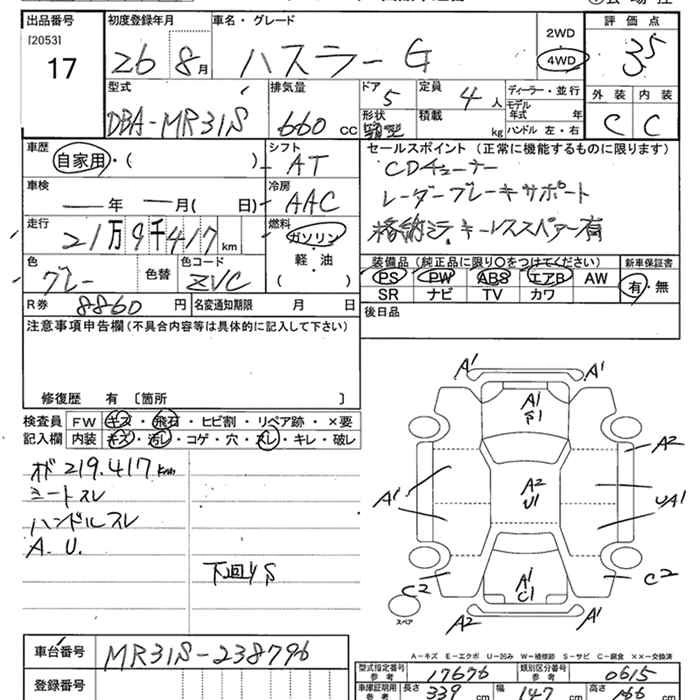 出品番号 初度登録年月 車名・グレード 評価点
[2053]
17 26 8月 ハスラー G 2WD 4WD 3.5
型式 排気量 ドア 定員 ディーラー・並行 外装 内装
DBA-MR31S 660 CC 5 4 人 モデル年式 年 C C
形状 積載 kg ハンドル 左・右
車歴 シフト セールスポイント (正常に機能するものに限ります)
自家用・( ) AT CDチューナー
車検 冷房 レーダーブレーキサポート
年 月( 日) AAC 格納ミラ キーレススペアー有
走行 燃料
21万9千417km ガソリン
軽・油
( )
色 色替 色コード 装備品(純正品に限り○をつけてください) 新車保証書
グレー ZVC PS PW ABS エアB AW 有・無
SR ナビ TV カワ
R券 8860 円 名変通知期限 月 日 後日品
注意事項申告欄(不具合内容等は具体的に記入して下さい)
修復歴 有 〔箇所 〕
検査員 FW キズ・飛石・ヒビ割・リペア跡・×要
記入欄 内装 キズ・汚レ・コゲ・穴・スレ・キレ・破レ
オド219.417km
シートスレ
ハンドルスレ
A.U.
下回りS
A1 A1
A1
S1
A2
A1 A2 U1 UA1
C2 A1 C1 C2
スペア A2 A1
A-キズ E-エクボ U-凹み W-補修跡 S-サビ C-腐食 ××-交換済
車台番号 MR31S-238796
登録番号
型式指定番号 参考 17676 類別区分番号 参考 0615
車庫証明用 参考 長さ 339 cm 幅 147 cm 高さ 166 cm